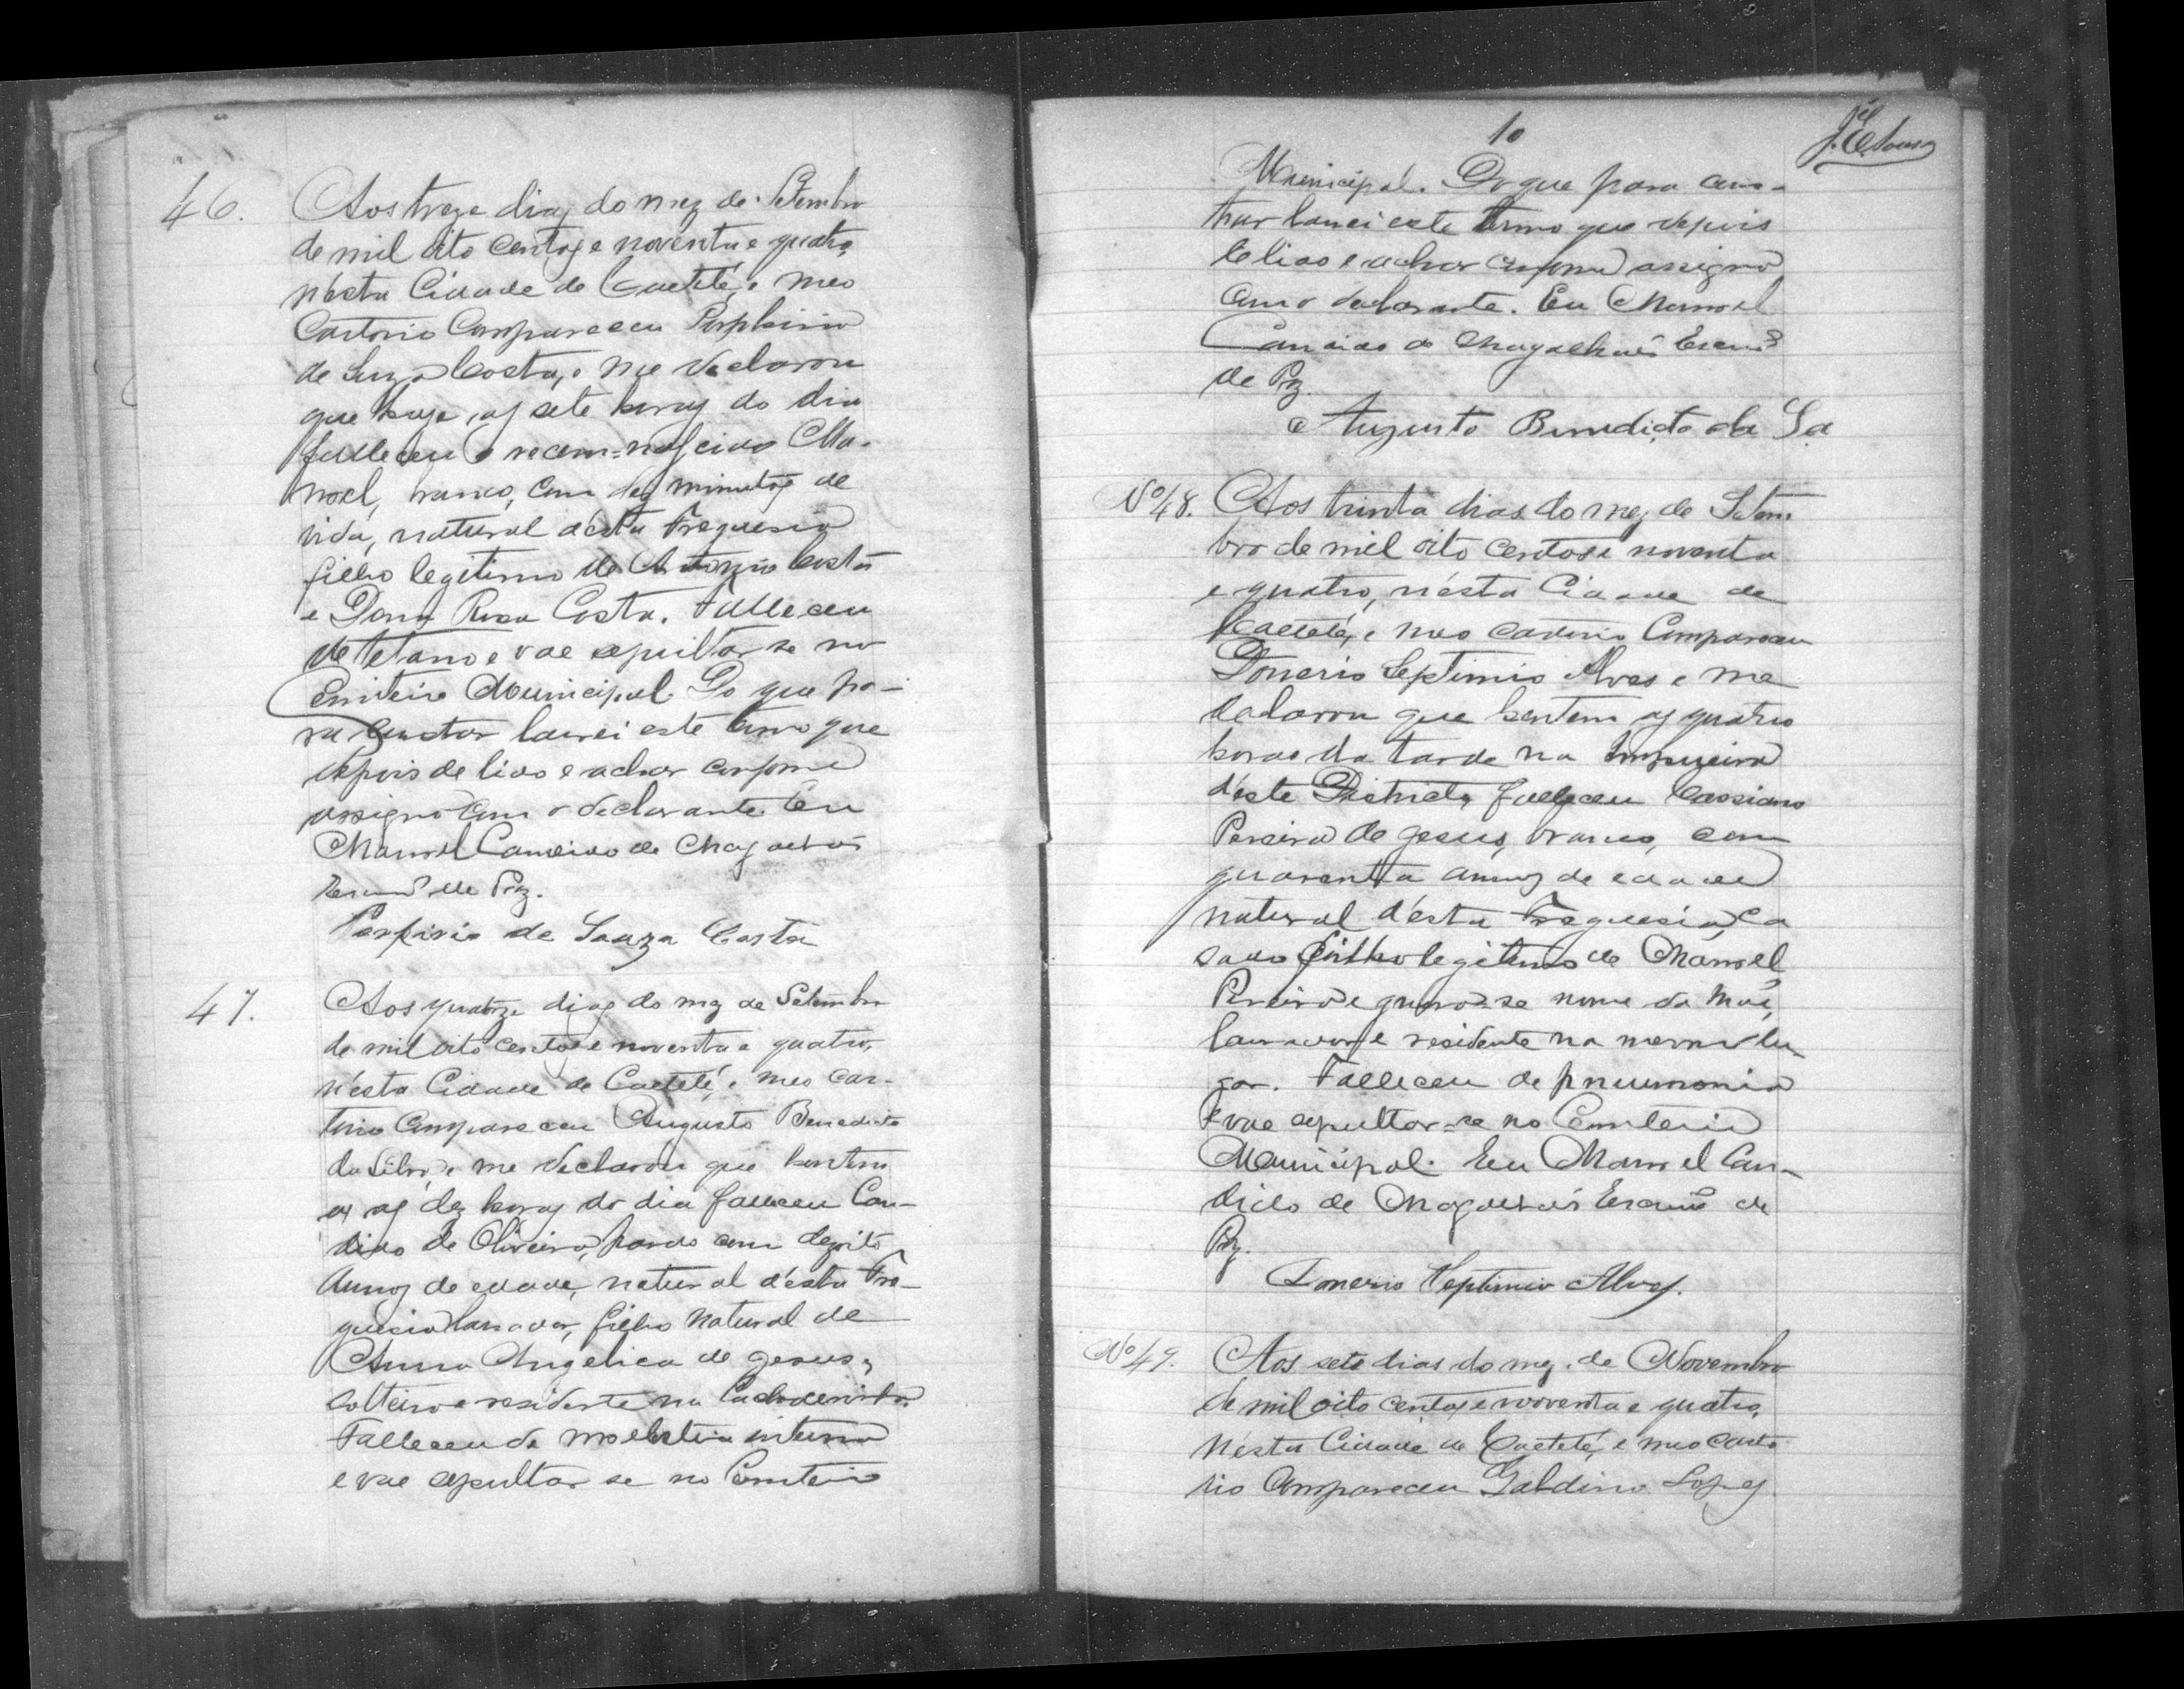 46.
Aos treze dias do mez de Setembro
de mil oito centos e noventa e quatro,
nésta Cidade de Caetité, e meo
Cartorio Compareceu Porphirio
de Souza Costa, e me declarou
que hoje, as sete horas do dia
falleceu o recem-nascido Ma-
noel, branco, com dez minutos de
vida, natural désta Freguesia
filho legitimo de Antonio Costa
e Dona Rosa Costa. Falleceu
de tetano e vae sepultar-se no
Cemiterio Municipal. Do que pa-
ra constar lavrei este termo que
depois de lido e achar conforme
assigno com o declarante. Eu
Manoel Candido de Magalhães
Escrivão de Paz.
Porfirio de Souza Costa
47.
Aos quatorze dias do mez de Setembro
de mil oito centos e noventa e quatro,
nésta Cidade de Caetité, e meo Car-
torio Compareceu Augusto Benedicto
da Silva, e me declarou que hontem
as as dez horas do dia falleceu Can-
dido de Oliveira, pardo com dezoito
annos de edade, natural désta Fre-
guesia lavrador, filho natural de
Anna Angelica de Jesus,
solteiro e residente na
Falleceu de molestia interna
e vae sepultar se no Cemiterio
10
J. E. Souza
Municipal. Do que para cons-
tar lavrei este termo que depois
de lido e achar conforme assigno
com o declarante. Eu Manoel
Candido de Magalhães Escrivão
de Paz.
Augusto Benedicto da Sa
Nº 48. Aos trinta dias do mez de Setem-
bro de mil oito centos e noventa
e quatro, nésta Cidade de
Caetité, e meo cartorio Compareceu
Donerio Septimio Alves e me
declarou que hontem as quatro
horas da tarde na
déste Districto, falleceu Cassiano
Pereira de Jesus, branco, com
quarenta annos de edade
natural d'esta Freguesia, Ca
sado filho legitimo de Manoel
Pereira e ignora-se nome da mãe,
lavrador e residente no mesmo lu-
gar. Falleceu de pneumonia
e vae sepultar-se no Cemiterio
Municipal. Eu Manoel Can-
dido de Magalhães Escrivão de
Paz.
Donerio Septimio Alves.
Nº 49. Aos sete dias do mez de Novembro
de mil oito centos e noventa e quatro,
Nésta Cidade de Caetité, e meo Carto
rio Compareceu Galdino Lopes